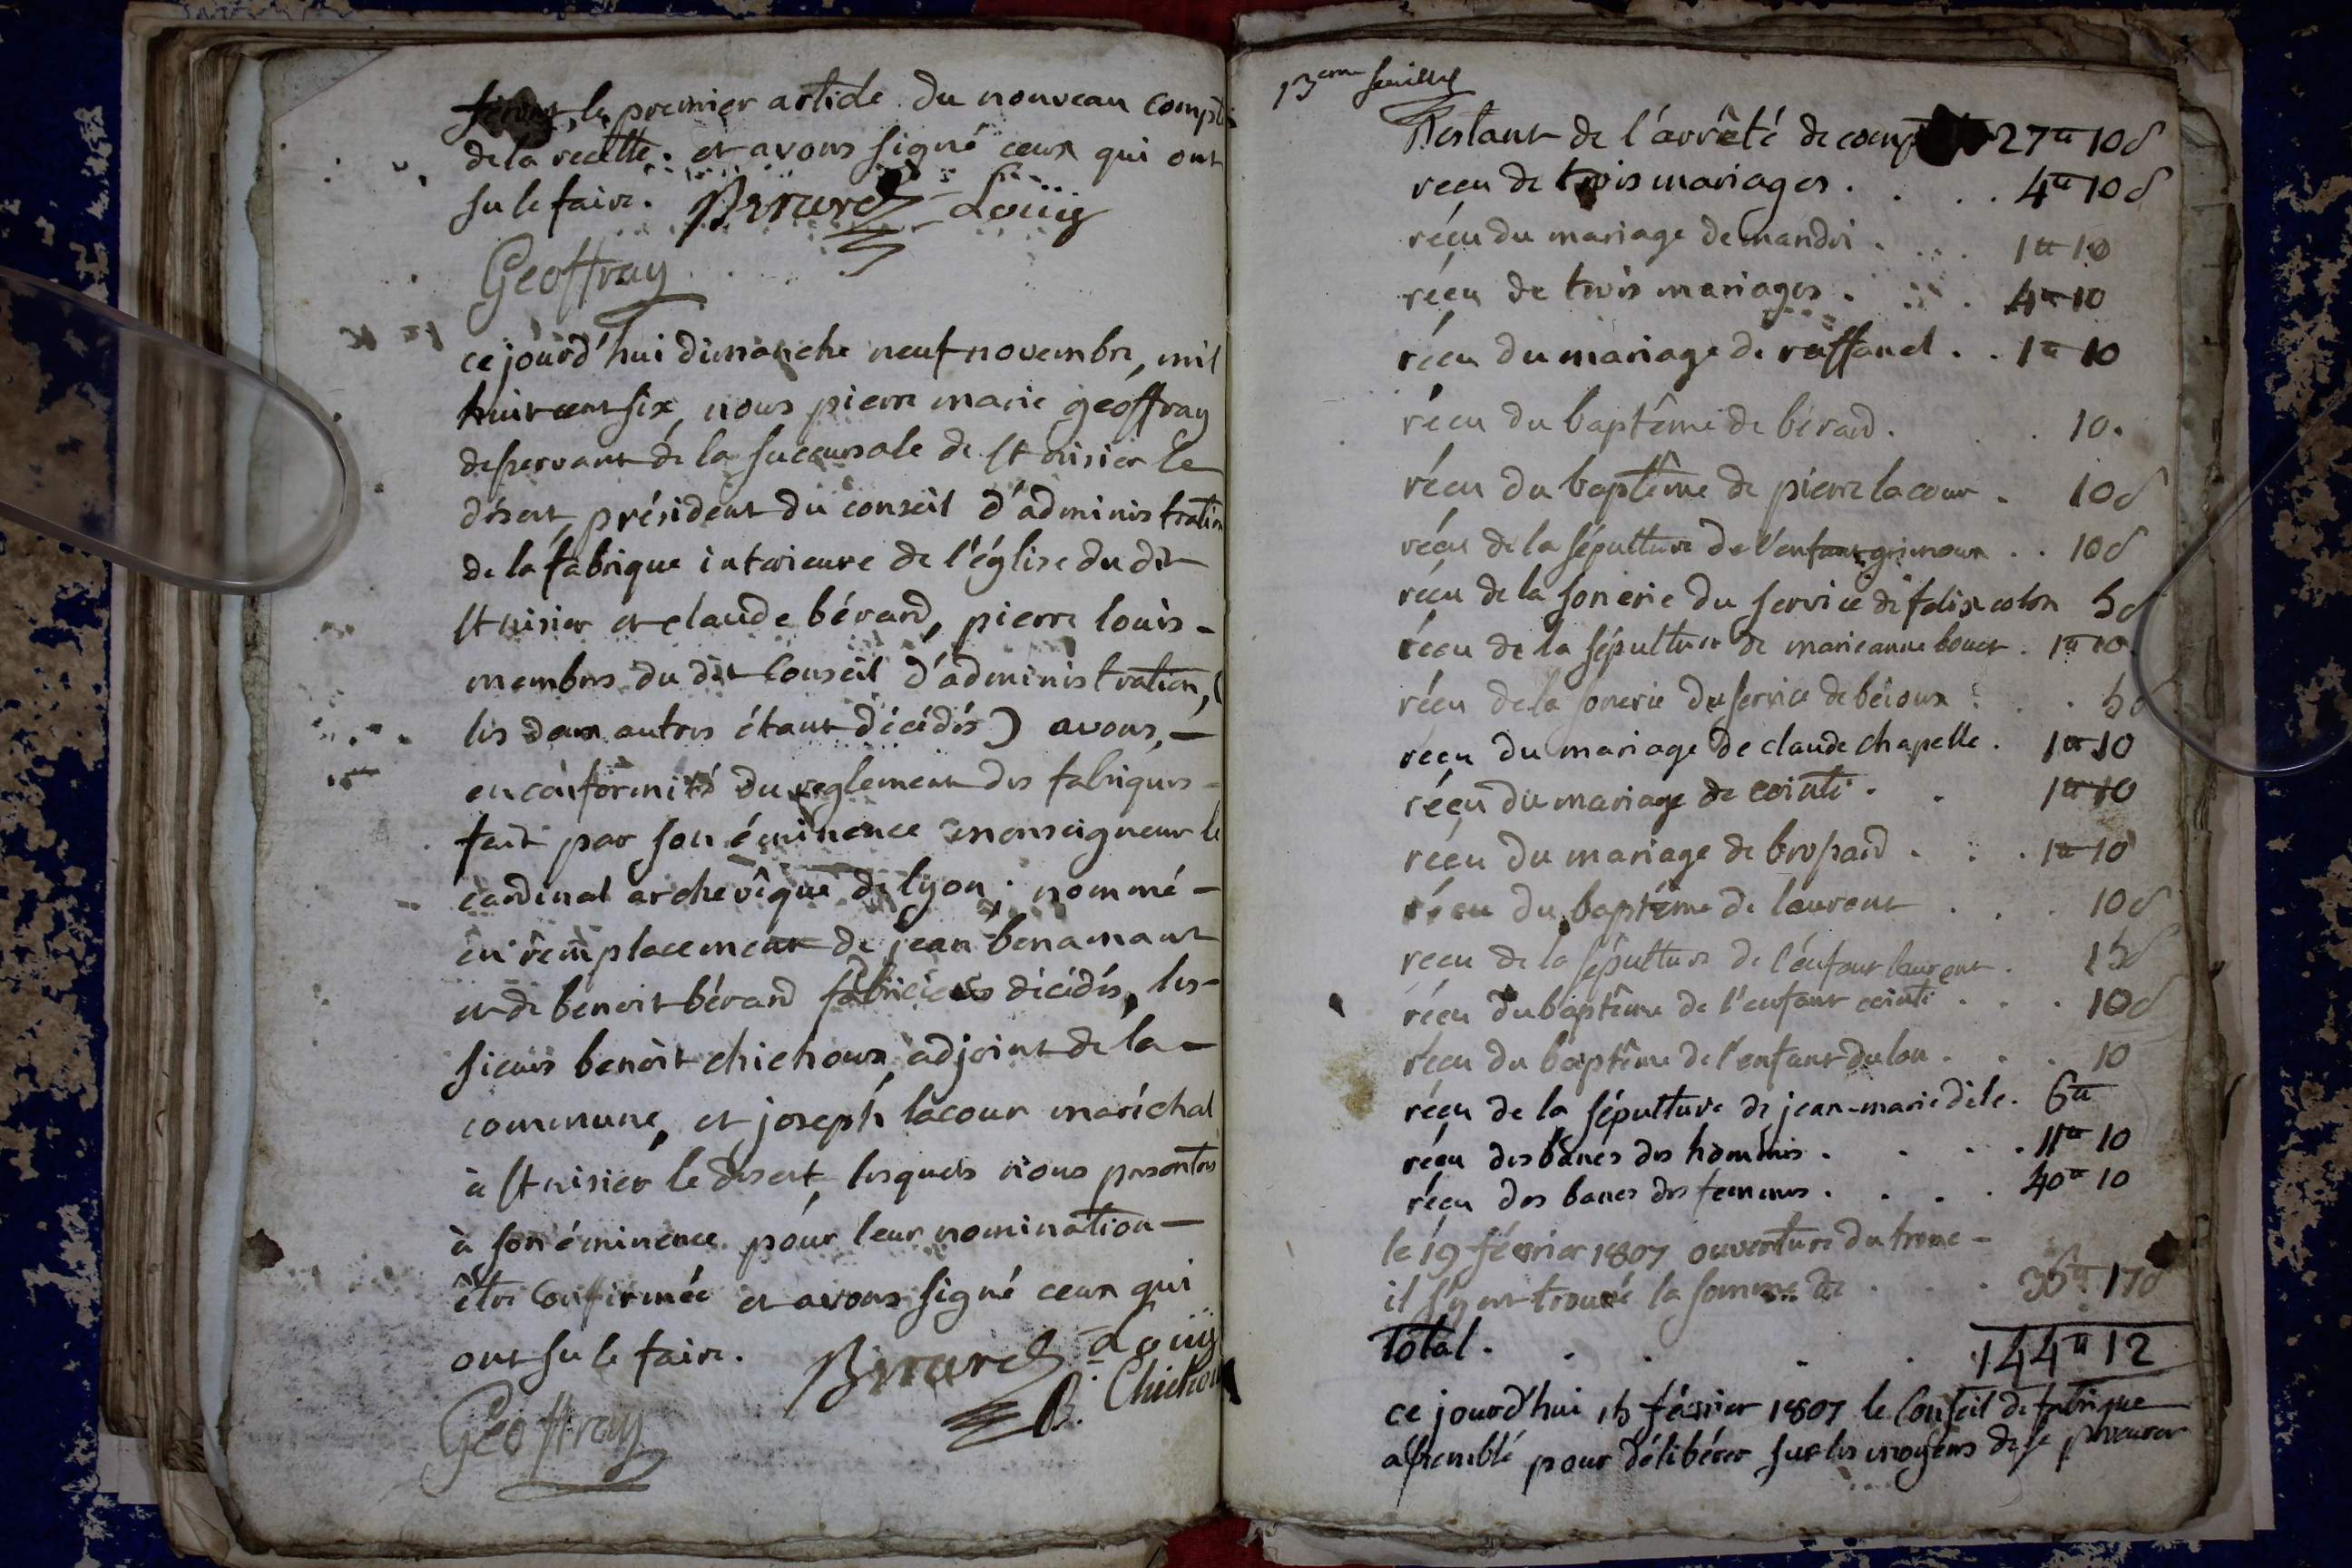 le premier article du nouveau compte
de la recette. et avons signé ceux qui ont
su le faire. Berard Louis
Geoffray
ce jourd'hui dimanche neuf novembre, mil
huit cent six, nous pierre marie géoffray
desservant de la succursale de St nisier le
désert, président du conseil d'administration
de la fabrique interieure de l'église du dit
St nisier et claude bérard, pierre louis -
membres du dit Conseil d'administration, (
les deux autres étant décédés) avons, -
en conformité du reglement des fabriques -
fait par son éminence monseigneur le
cardinal archevêque de lyon; nommé -
en remplacement de jean benamant
et de benoit bérard fabriciens décédés, les -
sieurs benoit chichoux, adjoint de la -
commune, et joseph lacour maréchal
à St nisier le désert, lesquels nous presentons
à son éminence pour leur nomination -
être Confirmée et avons signé ceux qui
ont su le faire. Berard Louis
Geoffray B. Chichoux
13eme feuillet
Restant de l'arrêté de 27tt 10s
reçu de trois mariages . . . 4tt 10s
réçu du mariage de mandri . . . 1tt 10
réçu de trois mariages . . . 4tt 10
réçu du mariage de ruffanel . . 1tt 10
réçu du baptême de bérard . . 10.
réçu du baptême de pierre lacour . 10s
réçu de la sépulture de l'enfant grimoux . . 10s
réçu de la sonerie du service de felix colon 5s
réçu de la sépulture de marieanne bouet . 1tt 10
réçu de la sonerie du service de . . 5s
reçu du mariage de claude chapelle . 1tt 10
réçu du mariage de cointi . . 1tt 10
réçu du mariage de brossard . . . 1tt 10
réçu du baptême de laurent . . . 10s
reçu de la sépulture de l'énfant laurent . 15s
réçu du baptême de l'enfant cointi . . . 10s
réçu du baptême de l'enfant dulon . . . 10
réçu de la sépulture de jean-marie dile . 6tt
réçu des bancs des hommes . . . . 11tt 10
réçu des bancs des femmes . . . . 40tt 10
le 19 février 1807 ouverture du tronc -
il s'y est trouvé la somme de . . . 35tt 17s
Total . . . . . 144tt 12
ce jourd'hui 15 février 1807 le Conseil de fabrique
assemblé pour délibérer sur les moyens de se procurer